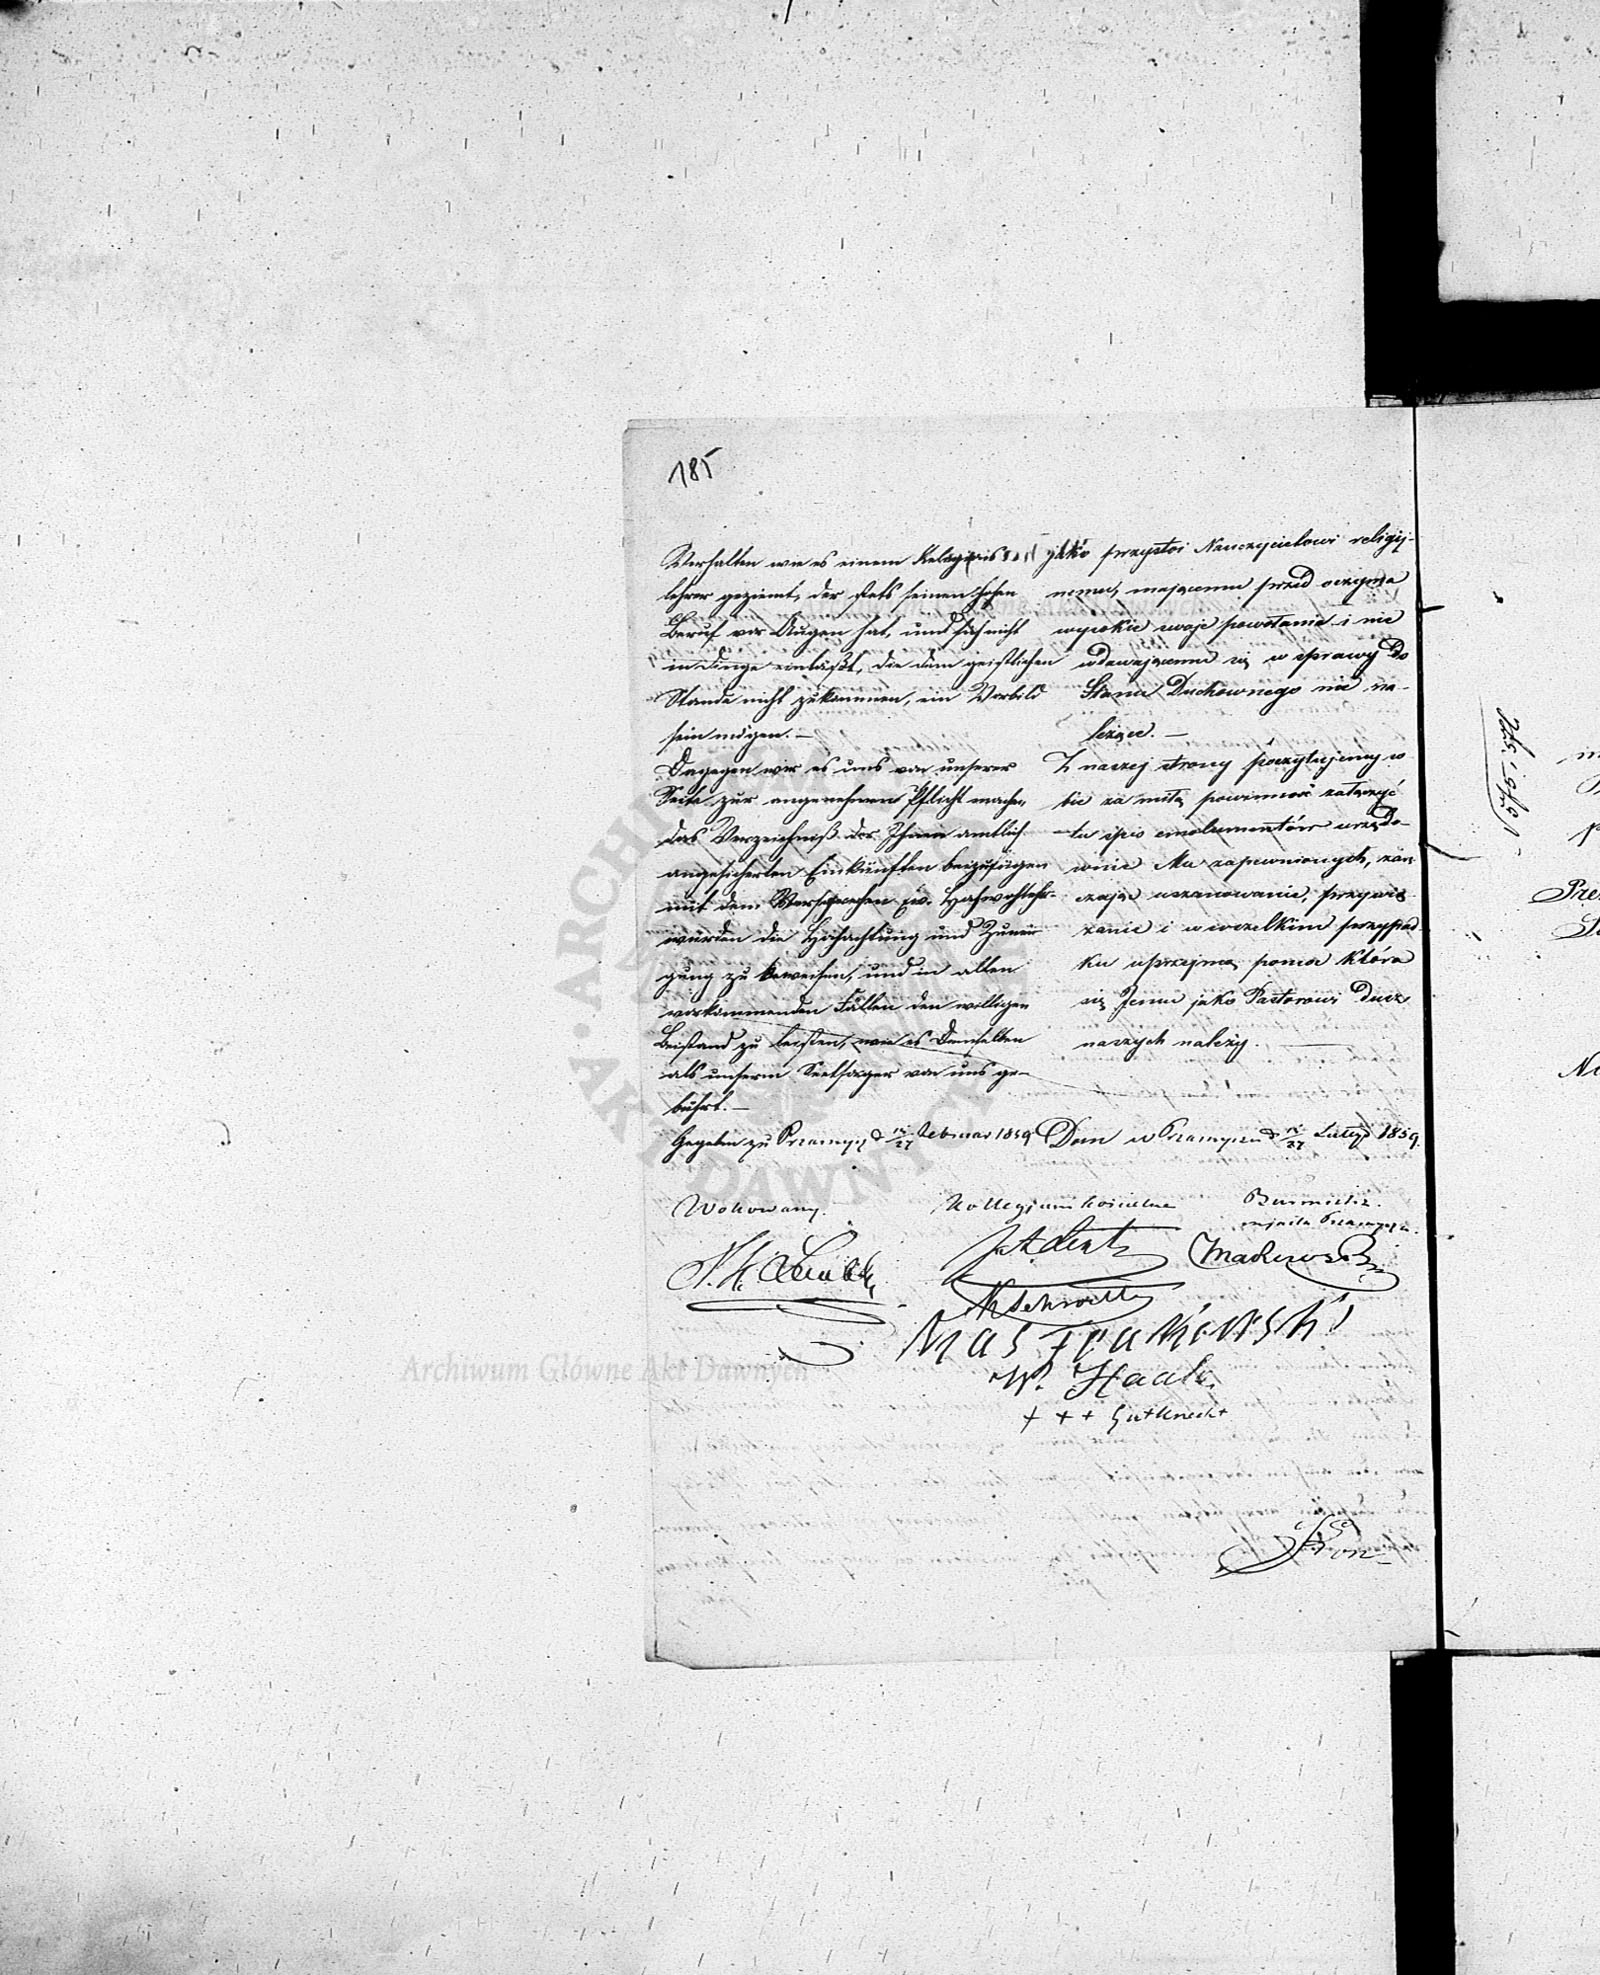 185
Verhalten wie es einem Religions
lehrer geziemt, der stets seinen hohen
Beruf vor Augen hat, und sich nicht
in Dinge einläßt, die dem geistlichen
Stande nicht zukommen, ein Vorbild
sein mögen. —
Dagegen wir es uns von unserer
Seite zur angenehmen Pflicht machen,
das Verzeichniß der Ihnen amtlich
angesicherten Einkünften beizufügen
mit dem Versprechen Ew. Hochwohlehr-
würden die Hochachtung und Zunei
gung zu beweisen, und in allen
vorkommenden Fällen den willigen
Beistand zu leisten, wie es Demselben
als unserm Seelsorger von uns ge-
bührt. —
Gegeben zu Przasnysz d 15/27 Februar 1859
jako przystoi Nauczycielowi religij-
nemu, mającemu przed oczyma
wysokie swoje powołanie i nie
wdawającemu się w sprawy do
Stanu Duchownego nie na-
leżące. —
Z naszej strony poczytujemy so
bie za miłą powinność załączyć
tu spis emolumentów urzędo-
wnie Mu zapewnionych, zarę
czając uszanowanie, przywią
zanie i w wszelkim przypad
ku uprzejmą pomoc która
się Jemu jako Pastorowi Dusz
naszych należy.
Dan w Przasnyszu d 15/27 Lutego 1859.
Wokowany.
Kollegium kościelne
Burmistrz
miasta Przasnysza.
W. Haak.
+ + + Gutknecht
Archiwum Główne Akt Dawnych